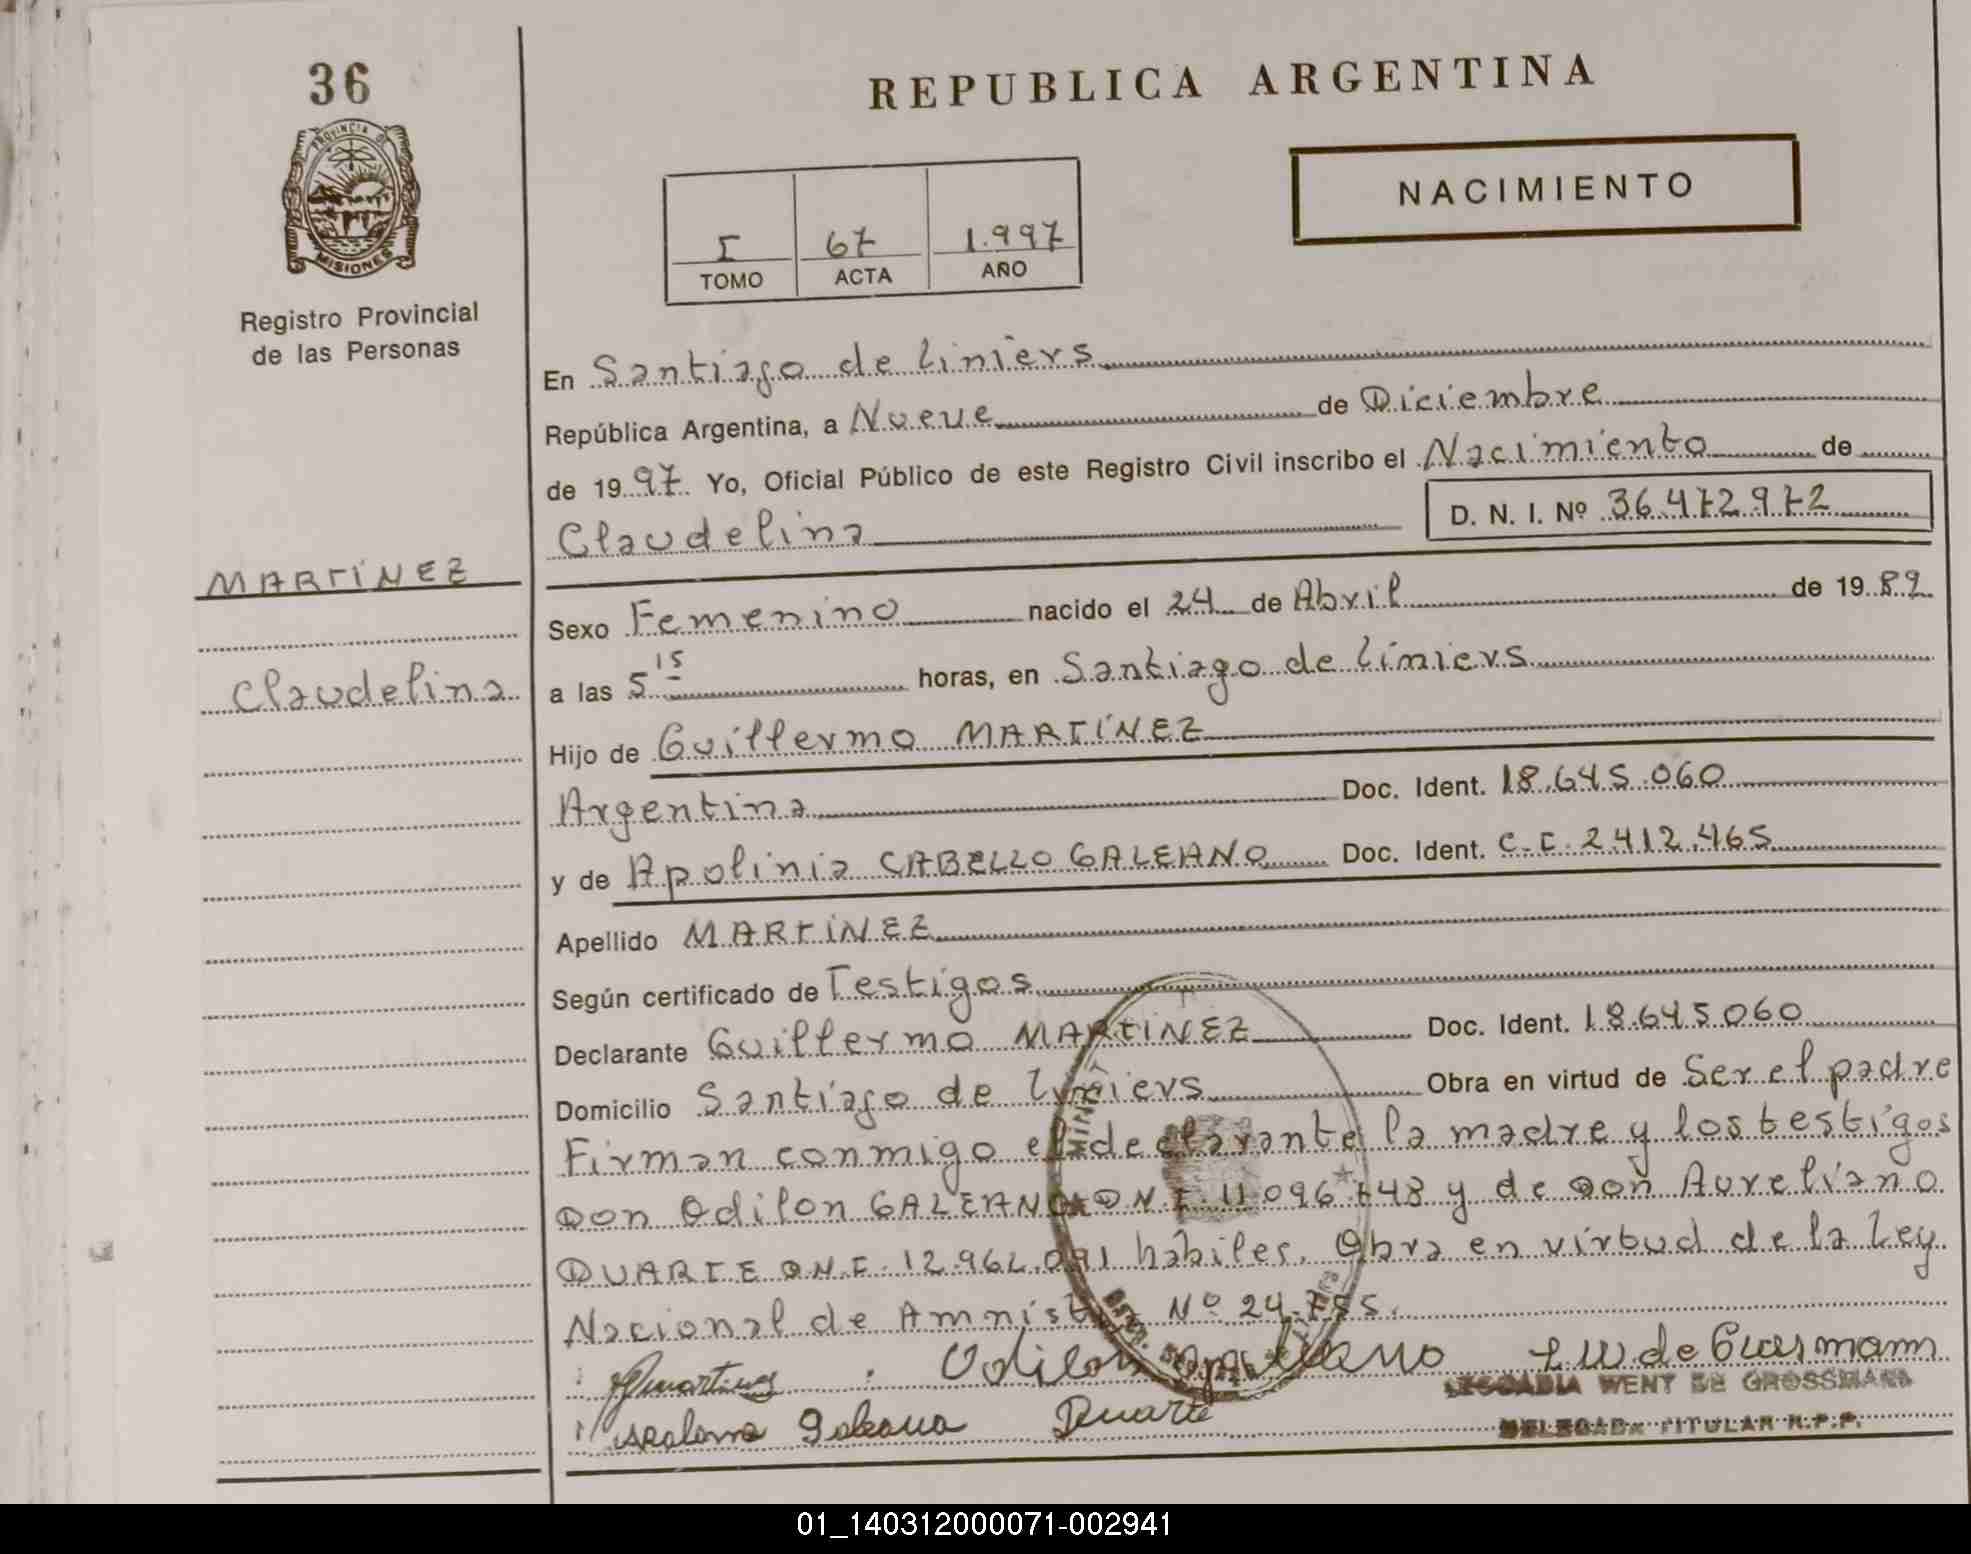 36
PROVINCIA DE
MISIONES
Registro Provincial
de las Personas
MARTÍNEZ
Claudelina
REPUBLICA ARGENTINA
NACIMIENTO
I 67 1.997
TOMO ACTA AÑO
En Santiago de Liniers
República Argentina, a Nueve de Diciembre
de 1997 Yo, Oficial Público de este Registro Civil inscribo el Nacimiento de
Claudelina D. N. I. Nº 36.472.972
Sexo Femenino nacido el 24 de Abril de 1989
a las 5 15 horas, en Santiago de Liniers
Hijo de Guillermo MARTÍNEZ
Argentina Doc. Ident. 18.645.060
y de Apolinia CABELLO GALEANO Doc. Ident. C.I. 2.412.465
Apellido MARTÍNEZ
Según certificado de Testigos
Declarante Guillermo MARTÍNEZ Doc. Ident. 18.645.060
Domicilio Santiago de Liniers Obra en virtud de Ser el padre
Firman conmigo el declarante la madre y los testigos
Don Odilon GALEANO D.N.I. 11.096.748 y de Don Aureliano
DUARTE D.N.I. 12.962.091 hábiles. Obra en virtud de la Ley
Nacional de Amnistía Nº 24.755.
Odilon Galeano
Galeana Duarte
LEOCADIA WENT DE GROSSMANN
DELEGADA TITULAR R.P.P.
01_140312000071-002941